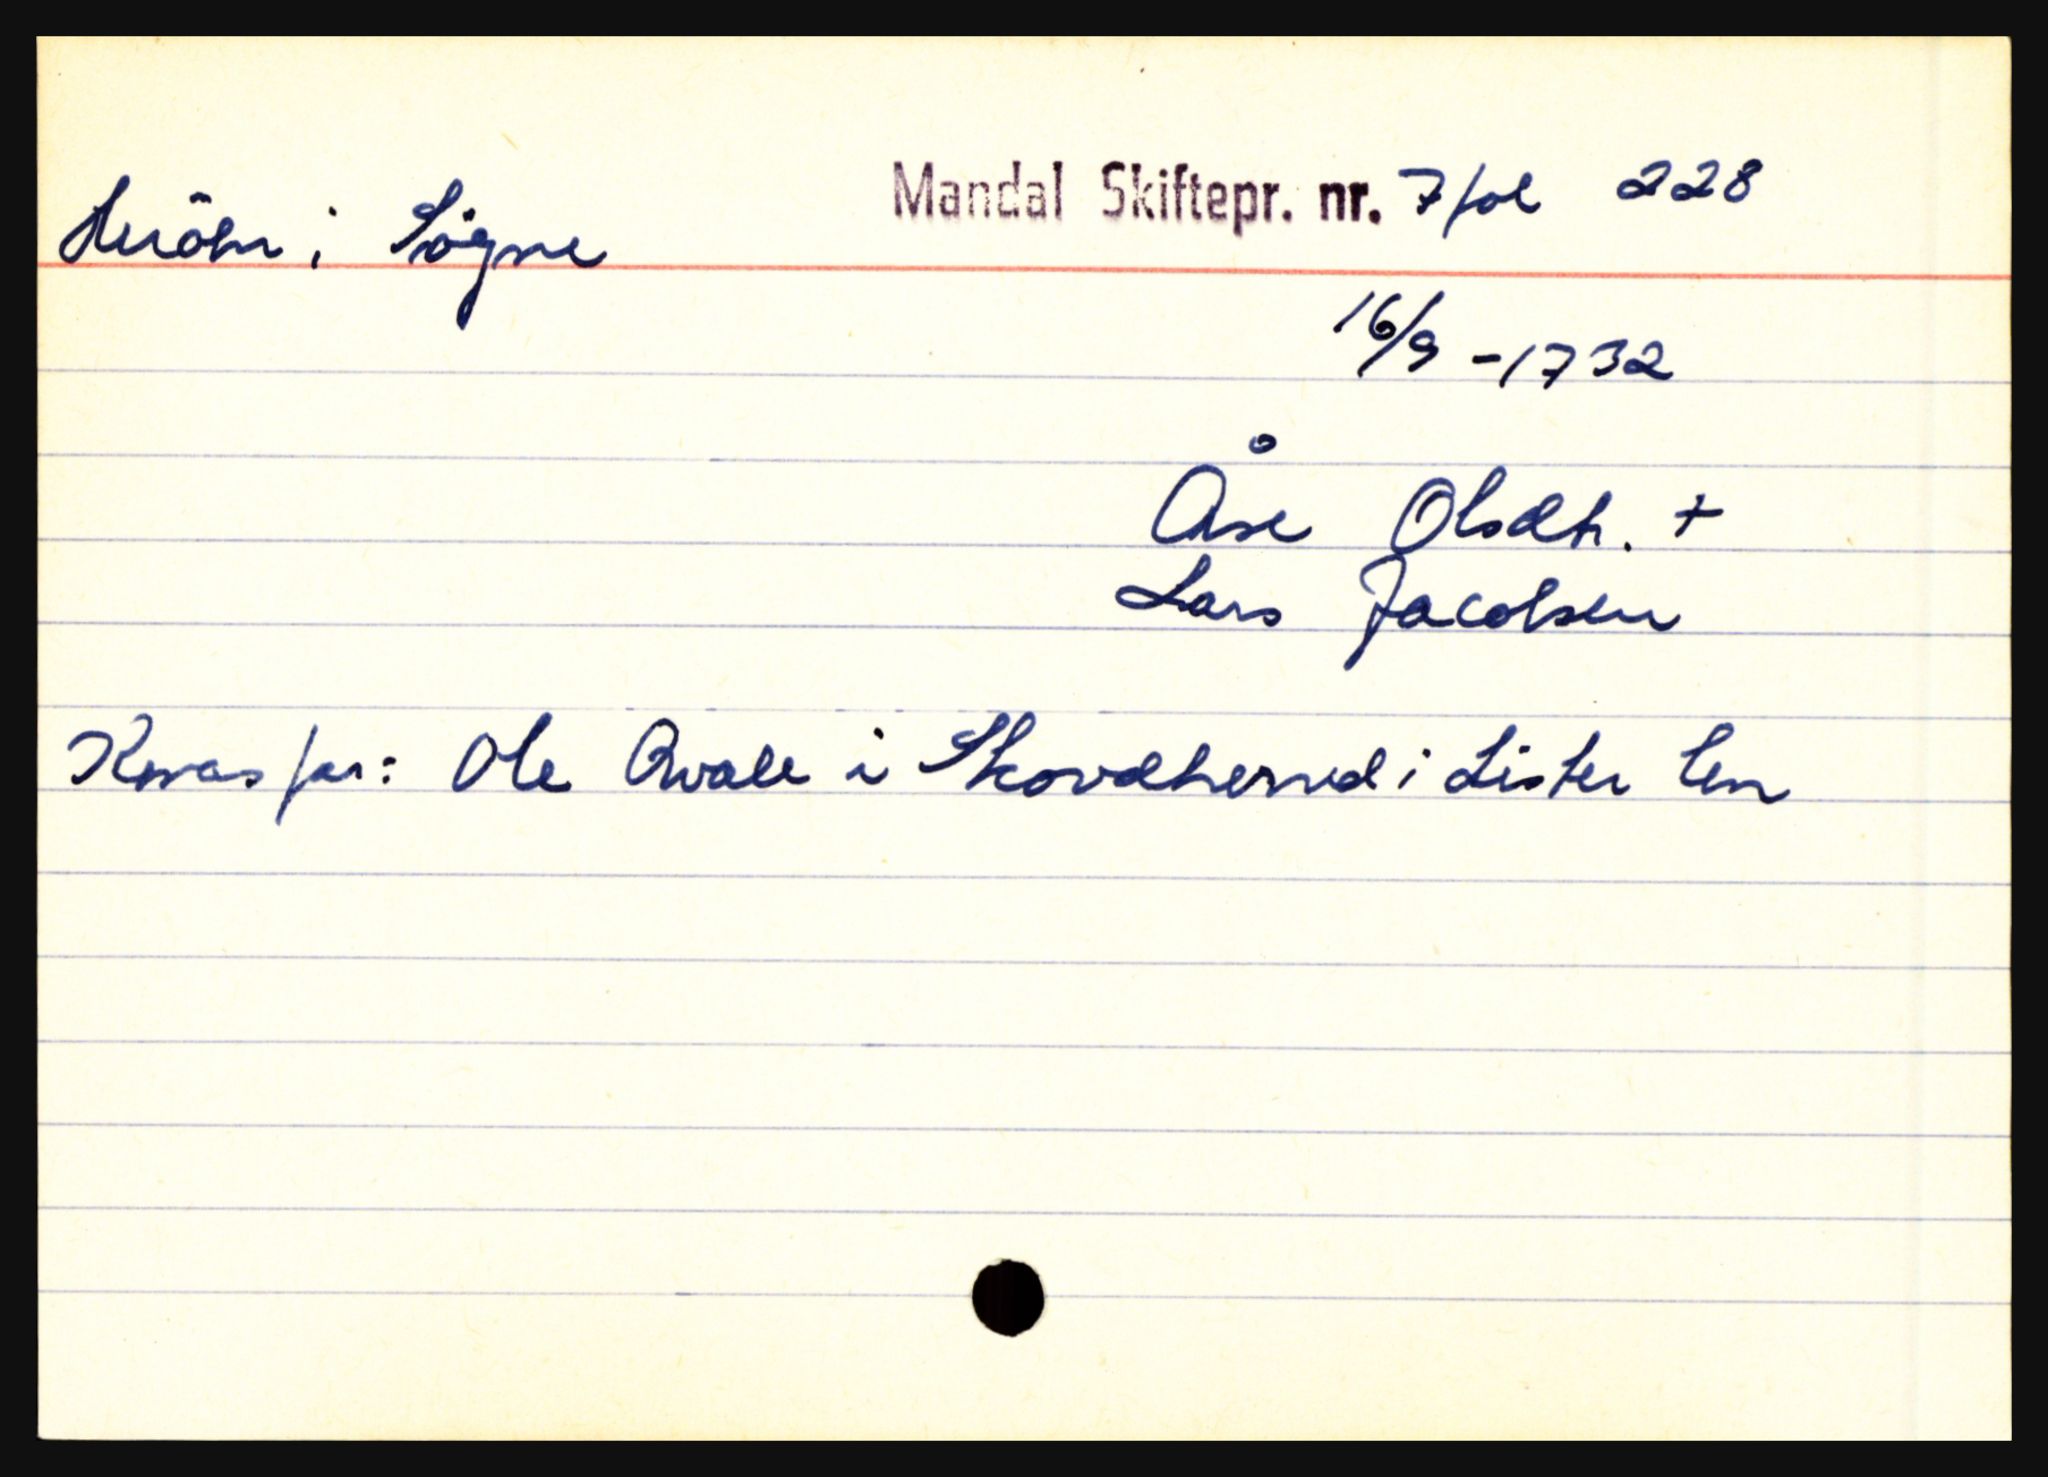 Mandal Skiftepr. nr. 7 fol 228
i Søgne
16/9 - 1732
Åse Olsdtr. +
Lars Jacobsen
Konas far: Ole Qvale i i Lister len